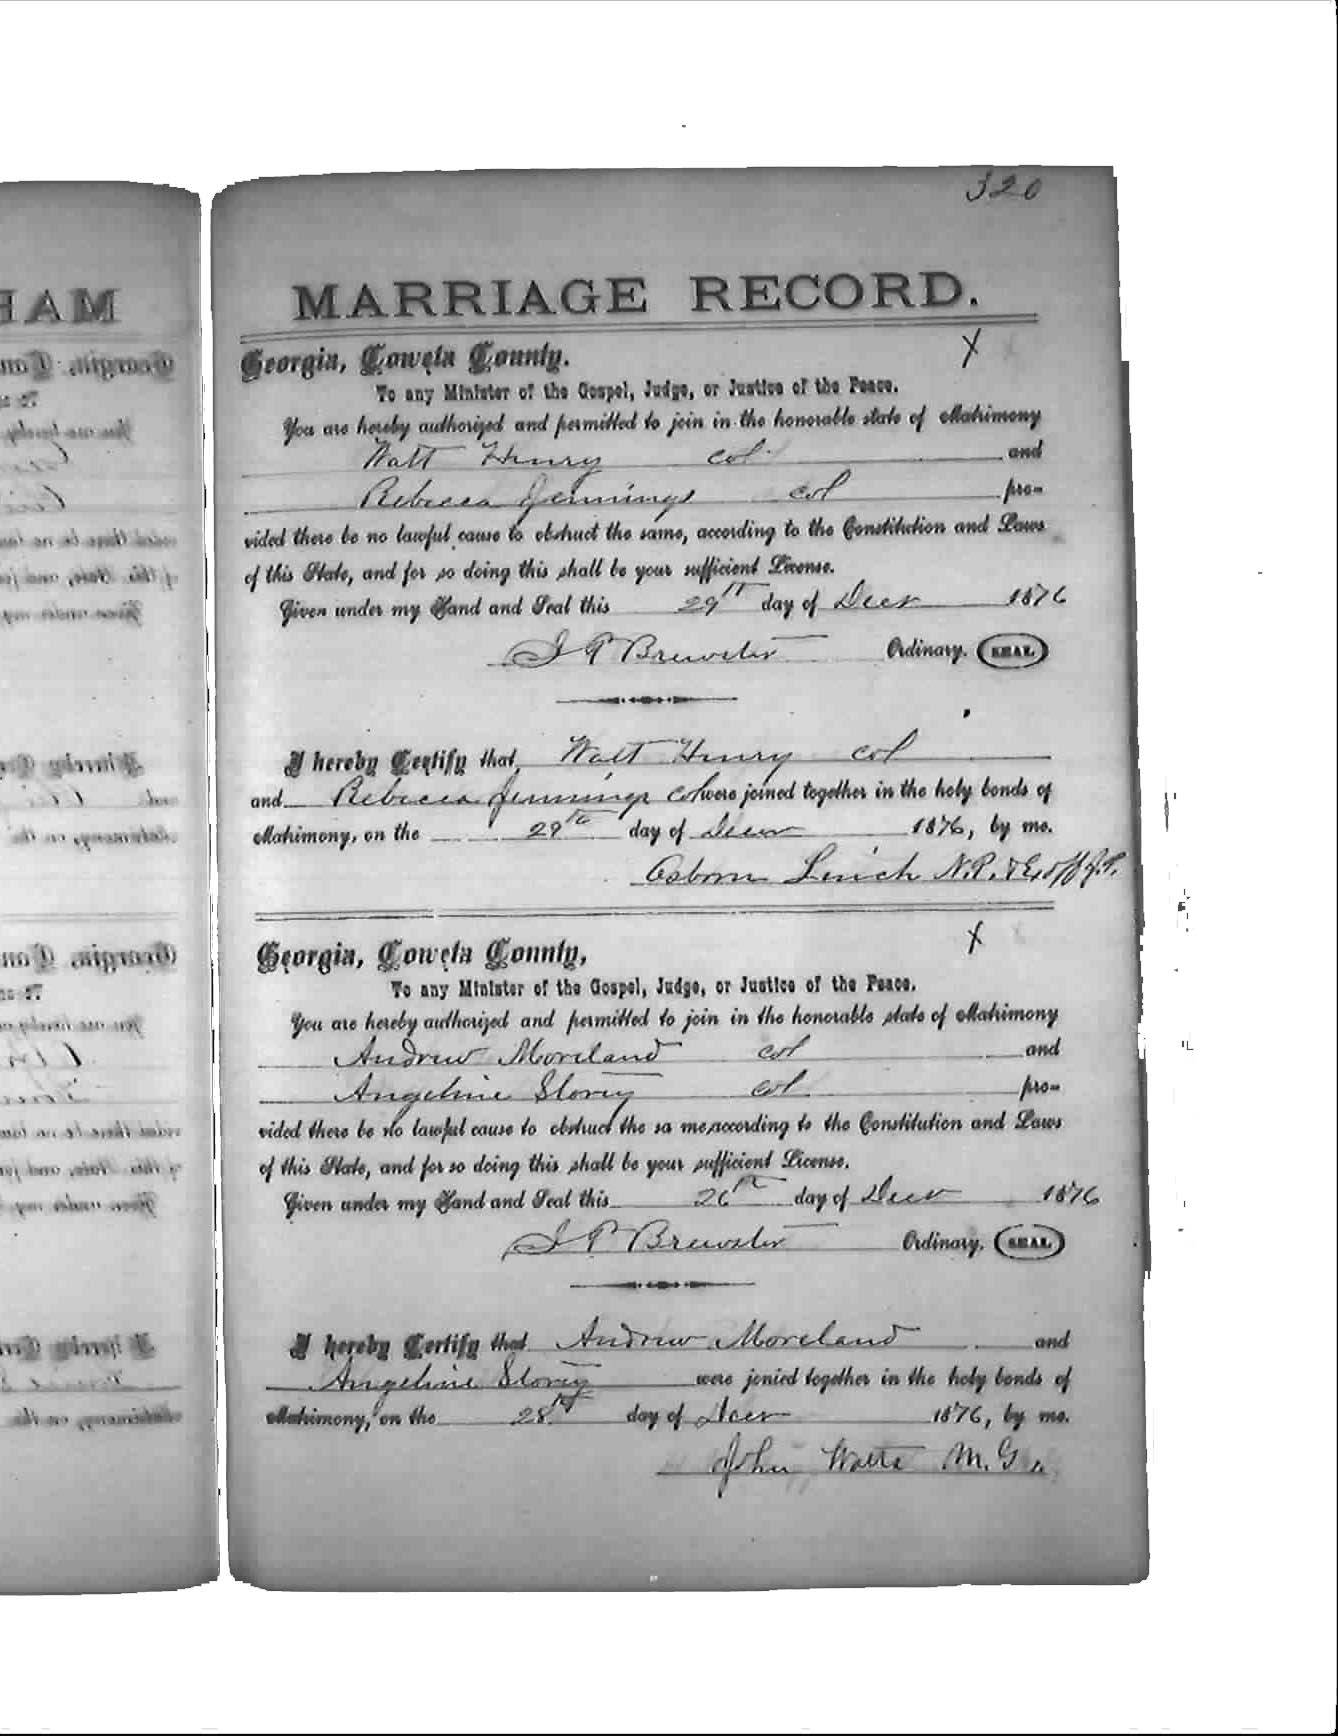 320
MARRIAGE RECORD.
Georgia, Coweta County.
X
To any Minister of the Gospel, Judge, or Justice of the Peace.
You are hereby authorized and permitted to join in the honorable state of Matrimony
Watt Henry col and
Rebecca Jennings col pro-
vided there be no lawful cause to obstruct the same, according to the Constitution and Laws
of this State, and for so doing this shall be your sufficient License.
Given under my Hand and Seal this 29th day of Decr 1876
J P Brewster Ordinary. SEAL
I hereby Certify that Watt Henry col
and Rebecca Jennings col were joined together in the holy bonds of
Matrimony, on the 29th day of Decr 1876, by me.
Osborn Linch N.P. & Ex off J.P.
Georgia, Coweta County,
X
To any Minister of the Gospel, Judge, or Justice of the Peace.
You are hereby authorized and permitted to join in the honorable state of Matrimony
Andrew Moreland col and
Angeline Storey col pro-
vided there be no lawful cause to obstruct the sa me,according to the Constitution and Laws
of this State, and for so doing this shall be your sufficient License.
Given under my Hand and Seal this 26th day of Decr 1876
J P Brewster Ordinary. SEAL
I hereby Certify that Andrew Moreland and
Angeline Storey were jonied together in the holy bonds of
Matrimony, on the 28th day of Decr 1876, by me.
John Watts M.G.